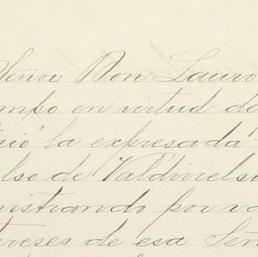 Señor Don Lauro
mpo en virtud de
la expresada
lso de Valdivielso
nistrando por va
tereses de esa Señ